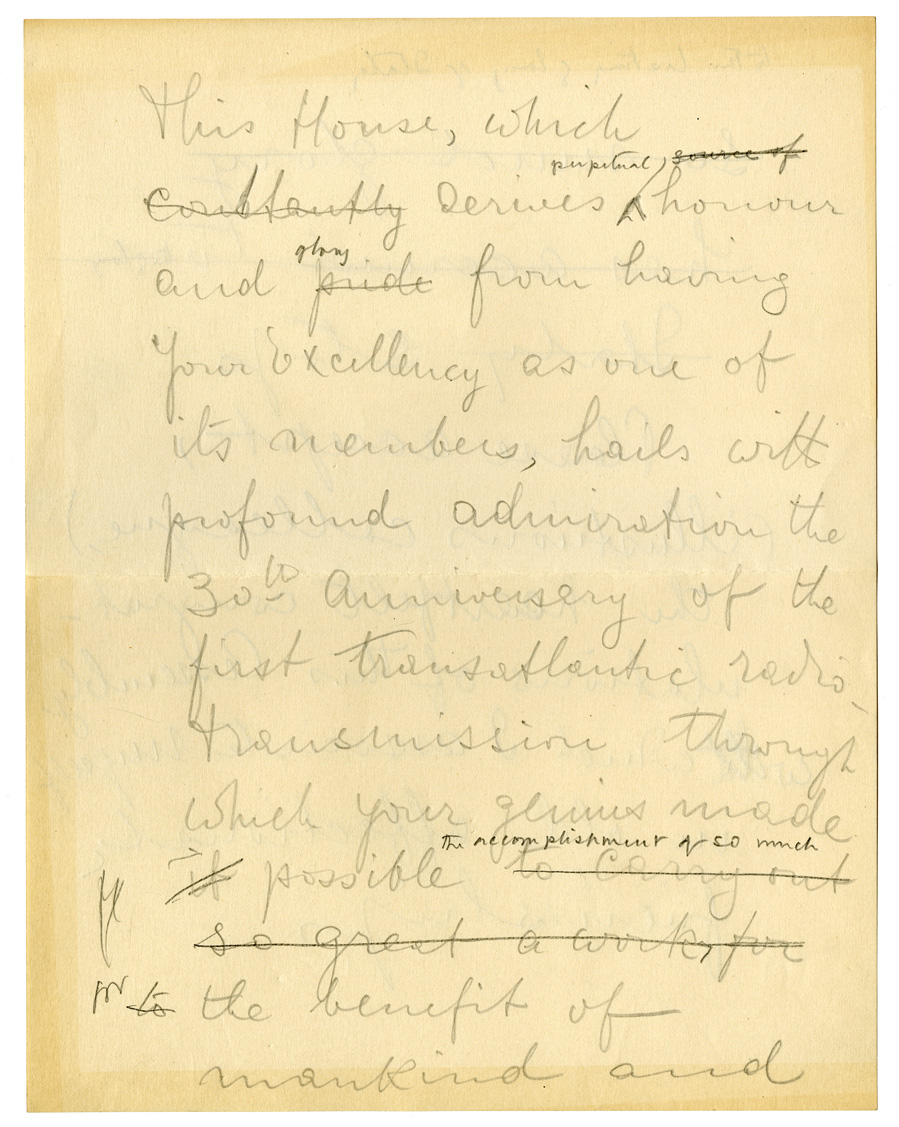 This House, which
perpetual, source of
constantly derives honour
glory
and pride from having
Your Excellency as one of
its members, hails with
profound admiration the
30th Anniversary of the
first transatlantic radio
transmission through
which your genius made
the accomplishment of so much
it possible to carry out
so great a work, for
for to the benefit of
mankind and